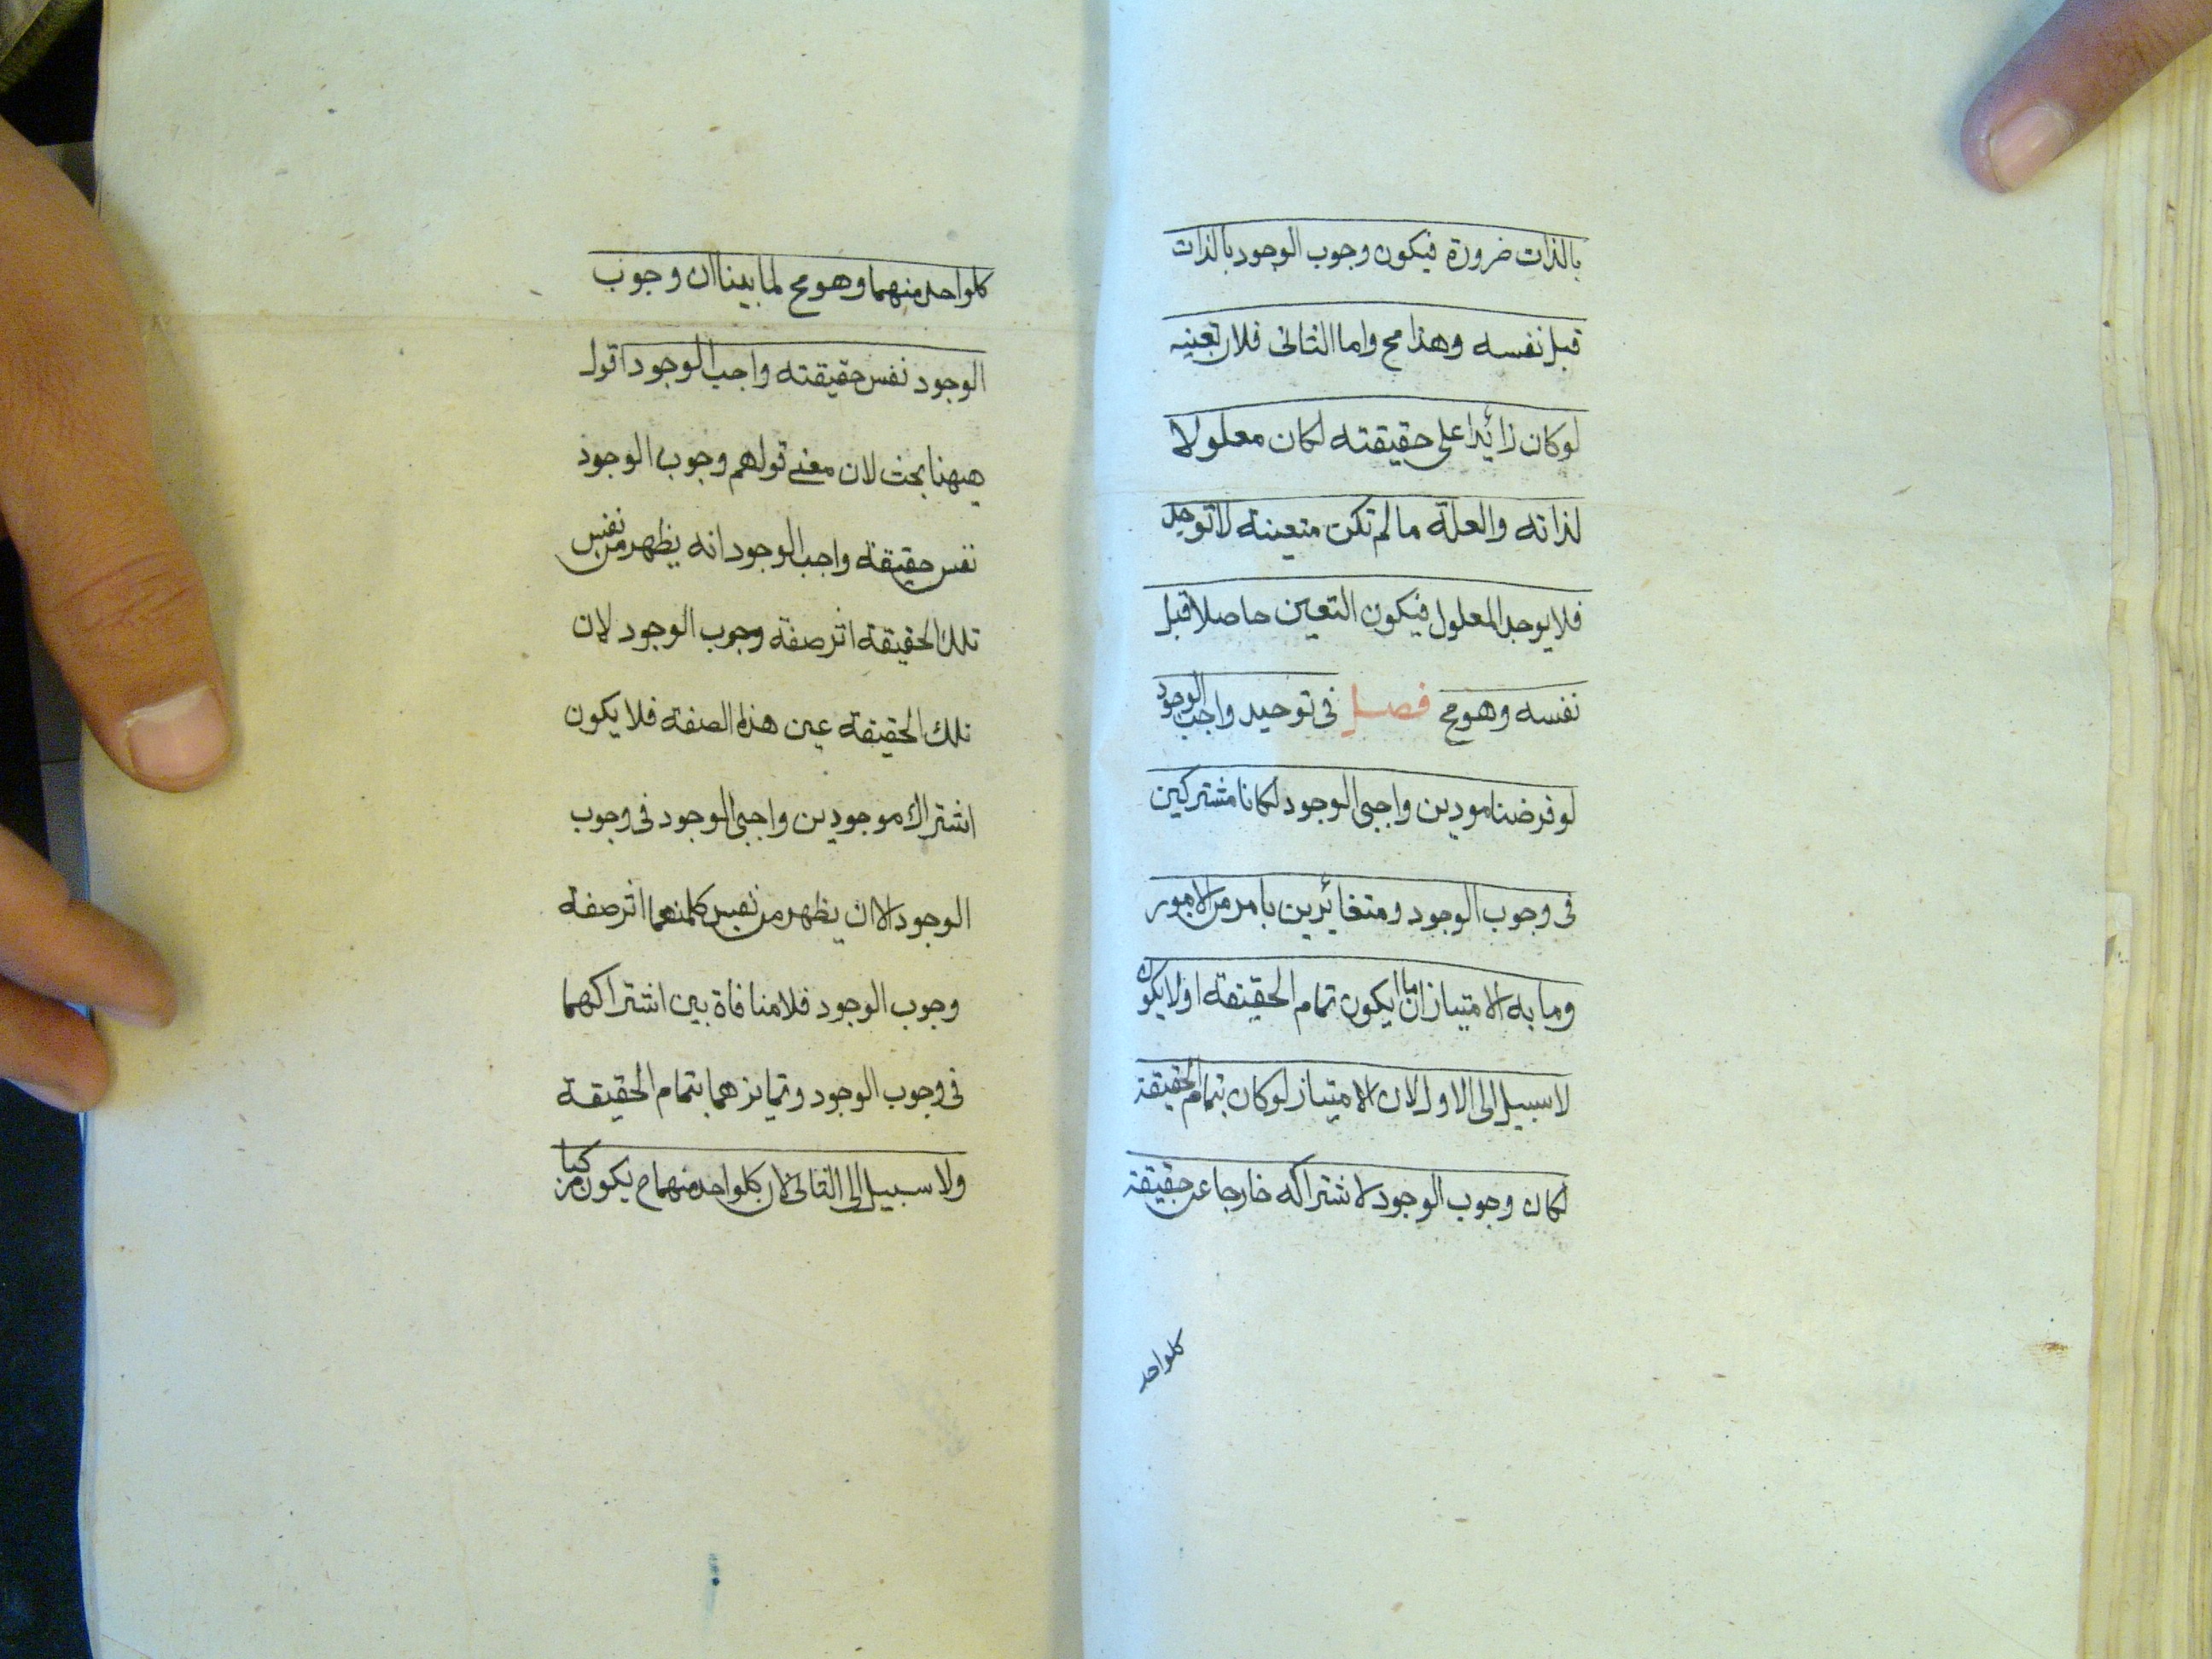 بالذات ضرورة فيكون وجوب الوجود بالذات
قبل نفسه وهذا مح واما الثانى فلان تعينه
لوكان زائدا على حقيقته لكان معلولا
لذاته والعلة مالم تكن متعينة لاتوجد
فلايوجد المعلول فيكون التعين حاصلا قبل
نفسه وهومح فصل فى توحيد واجب الوجود
لوفرضنا مودين واجبى الوجود لكانا مشتركين
فى وجوب الوجود ومتغائرين بامر من الامور
ومابه الامتياز اما ان يكون تمام الحقيقة اولايكون
لاسبيل الى الاول لان الامتياز لوكان بتمام الحقيقة
لكان وجوب الوجود لاشتراكه خارجا عن حقيقة
كلواحد
كلواحد منهما وهومح لمابينا ان وجوب
الوجود نفس حقيقته واجب الوجود اقول
هيهنا بحث لان معنى قولهم وجوب الوجود
نفس حقيقة واجب الوجود انه يظهر من نفس
تلك الحقيقة اثر صفة وجوب الوجود لان
تلك الحقيقة عين هذه الصفة فلا يكون
اشتراك موجودين واجبى الوجود فى وجوب
الوجود الا ان يظهر من نفس كلمنهما اثر صفة
وجوب الوجود فلامنافاة بين اشتراكهما
فى وجوب الوجود وتمايزهما بتمام الحقيقة
ولاسبيل الى الثانى لان كلواحد منهما ح يكون مركبا